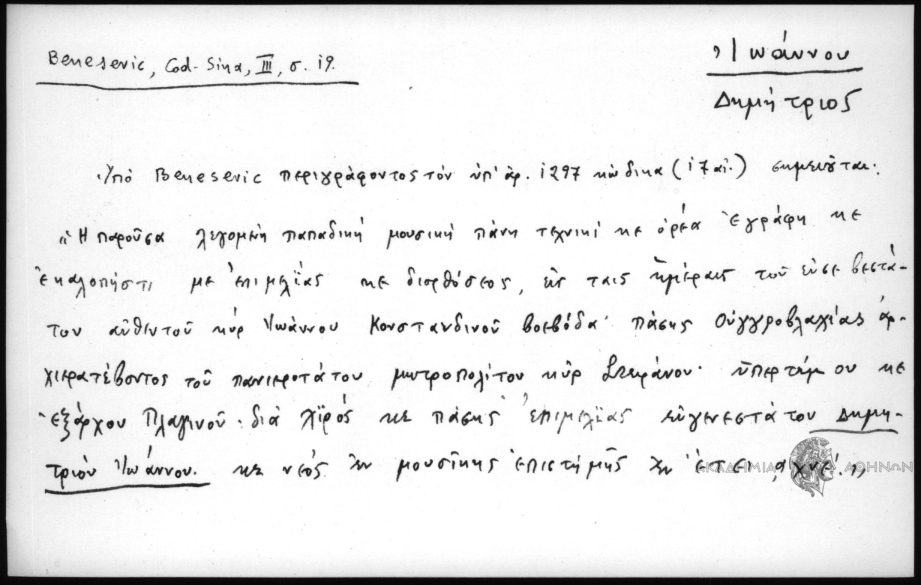 Benesevic, Cod. Sina, III, σ. 19.
Ἰωάννου
Δημήτριος
Ὑπὸ Benesevic περιγράφοντος τὸν ὑπ' ἀρ. 1297 κώδικα (17 αἰ.) σημειοῦται:
«Ἡ παροῦσα λεγομένη παπαδικὴ μουσικὴ πάνη τεχνικὶ κε ὁρέα ἐγράφη κε
ἐκαλοπήστι με ἐπιμελίας κε διορθόσεος, ἐν ταις ἡμέραις τοῦ εὐσεβεστά-
του αὐθεντοῦ κὺρ Ἰωάννου Κονστανδινοῦ βοεβόδα πάσης Οὑγγροβλαχίας ἀρ-
χιερατέβοντος τοῦ πανιεροτάτου μητροπολίτου κὺρ Στεφάνου· ὑπερτίμου κε
ἐξάρχου Πλαγινοῦ· διὰ χἱρός κε πάσης ἐπιμελίας εὐγενεστάτου Δημη-
τρίου Ἰωάννου. κε νεός ἐν μουσίκης ἐπιστήμης ἐν ἔτει ͵αχνε΄.»
ΑΚΑΔΗΜΙΑ ΑΘΗΝΩΝ